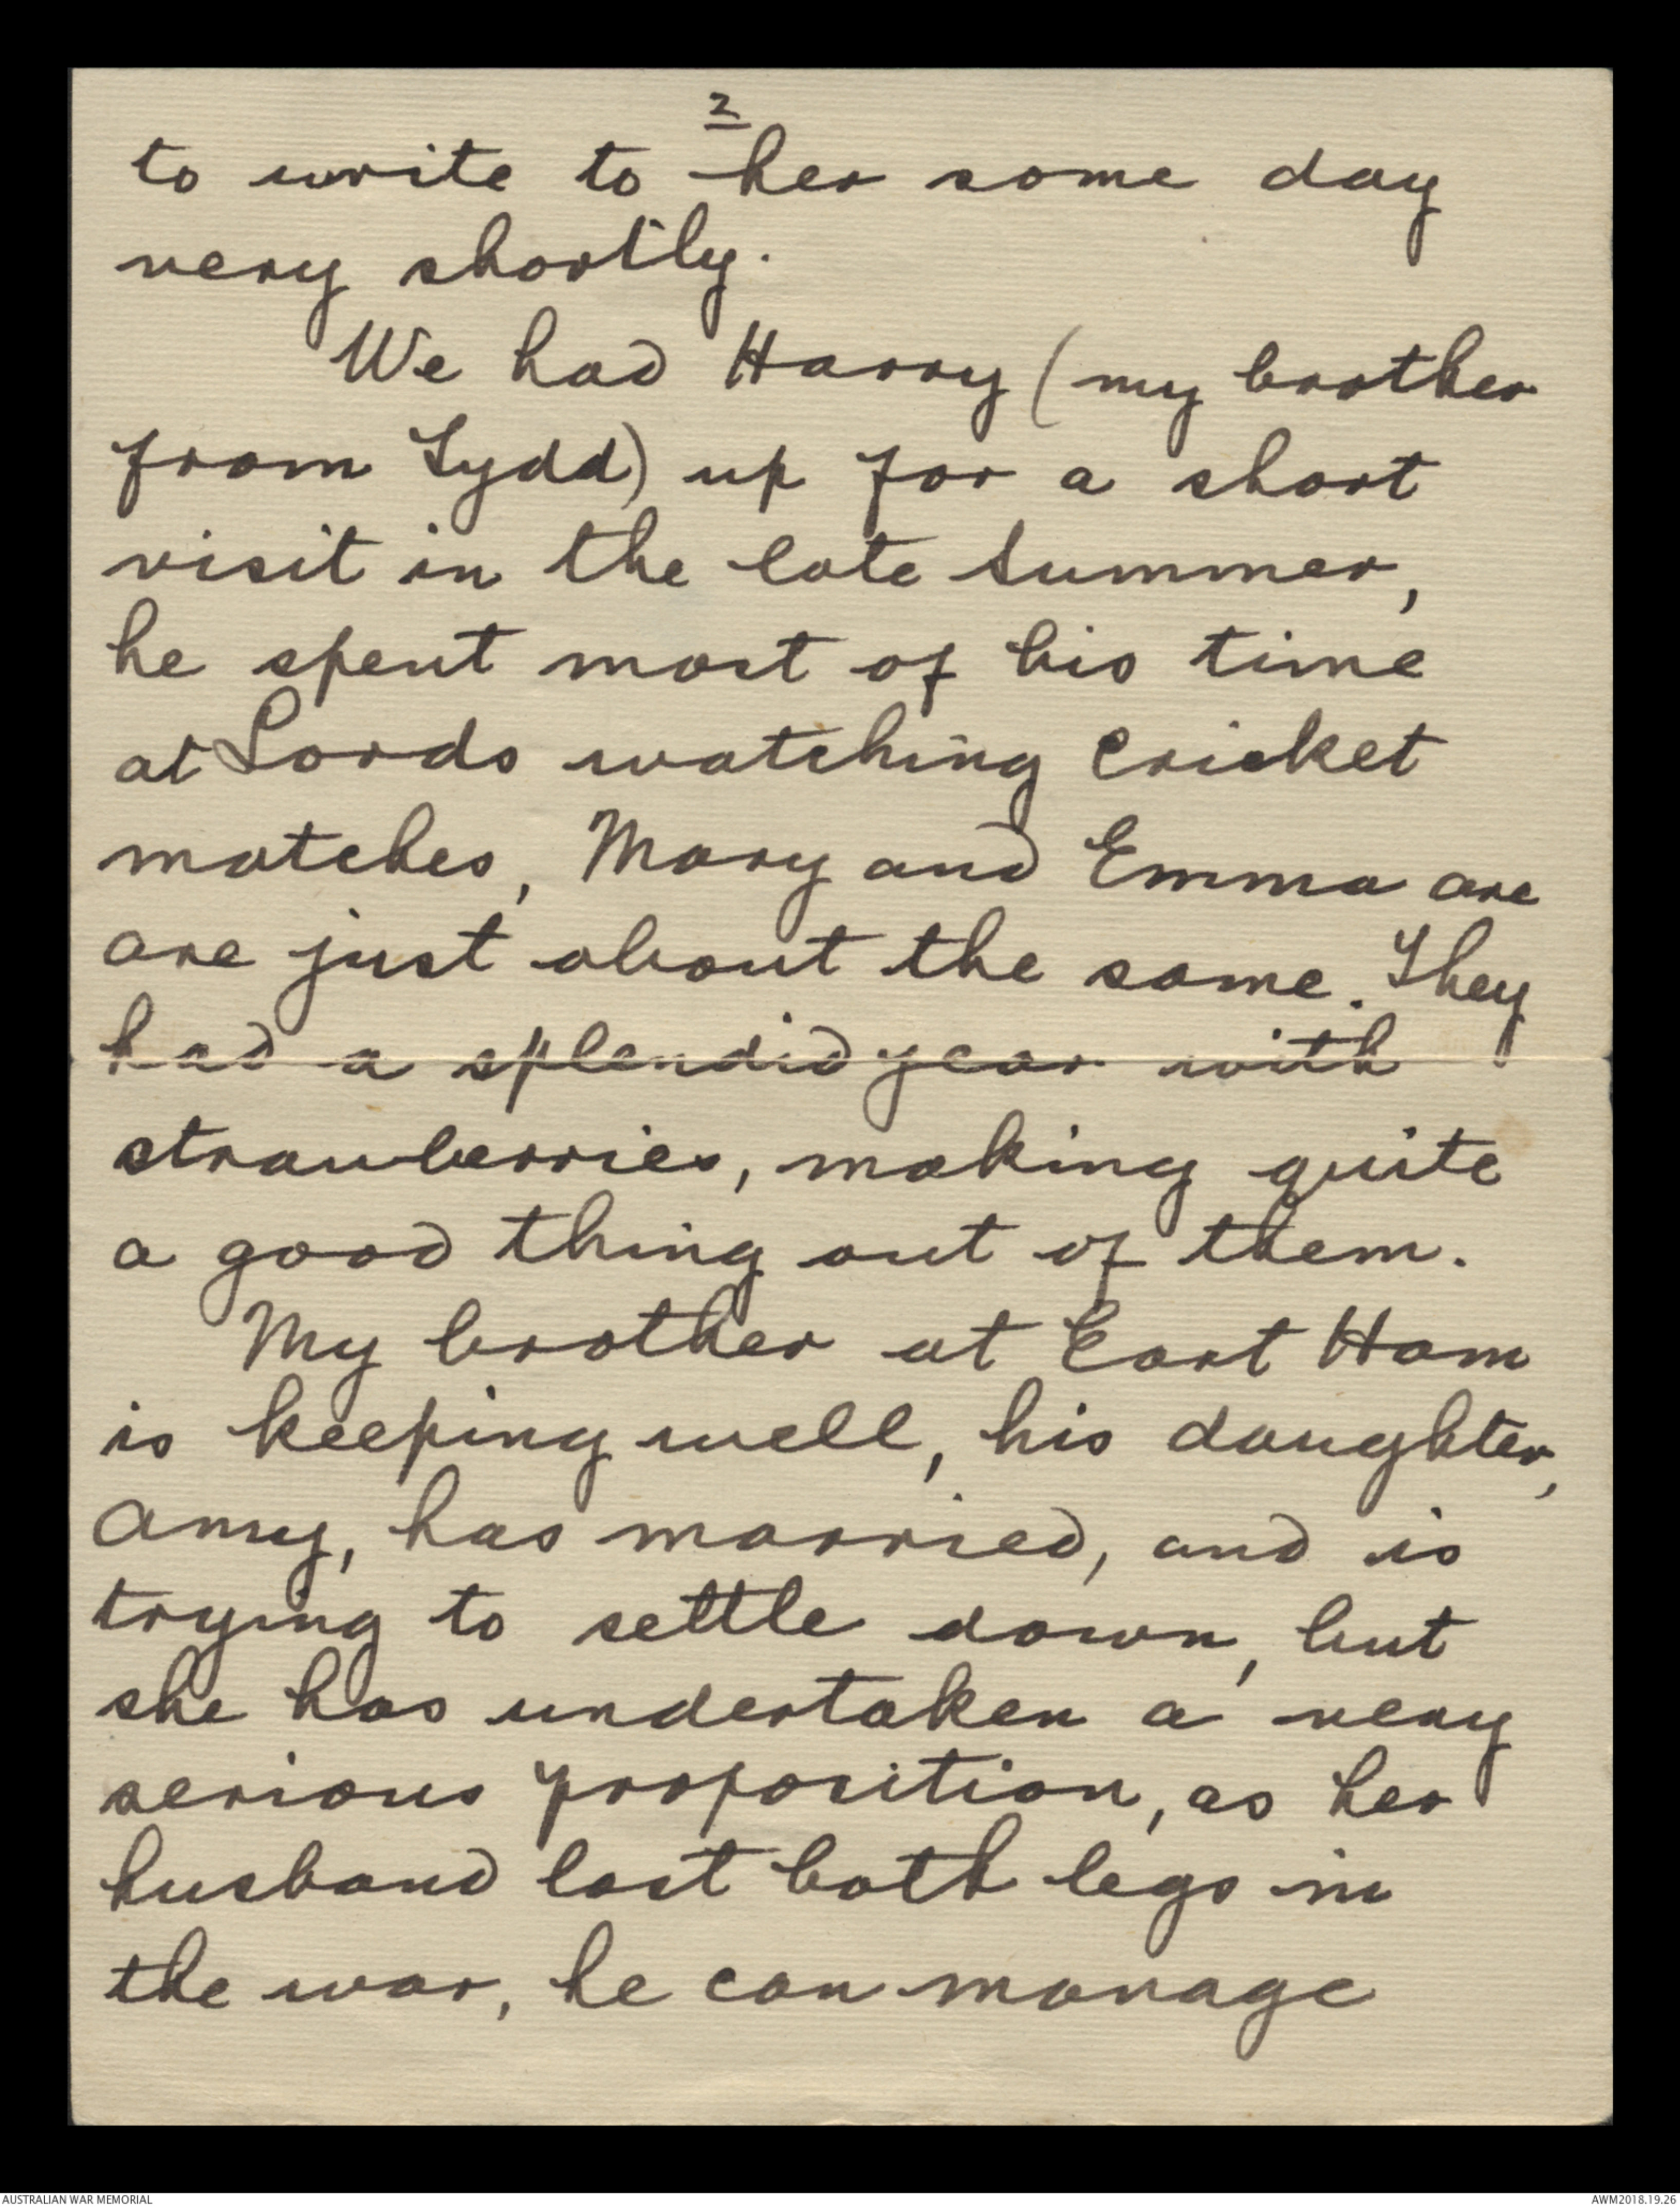 2
to write to her some day
very shortly.
We had Harry (my brother
from Lydd) up for a short
visit in the late Summer,
he spent most of his time
at Lords watching Cricket
matches, Mary and Emma are
are just about the same. They
had a splendid year with
strawberries, making quite
a good thing out of them.
My brother at East Ham
is keeping well, his daughter,
Amy, has married, and is
trying to settle down, but
she has undertaken a very
serious proposition, as her
husband lost both legs in
the war, he can manage
AUSTRALIAN WAR MEMORIAL
AWM2018.19.26